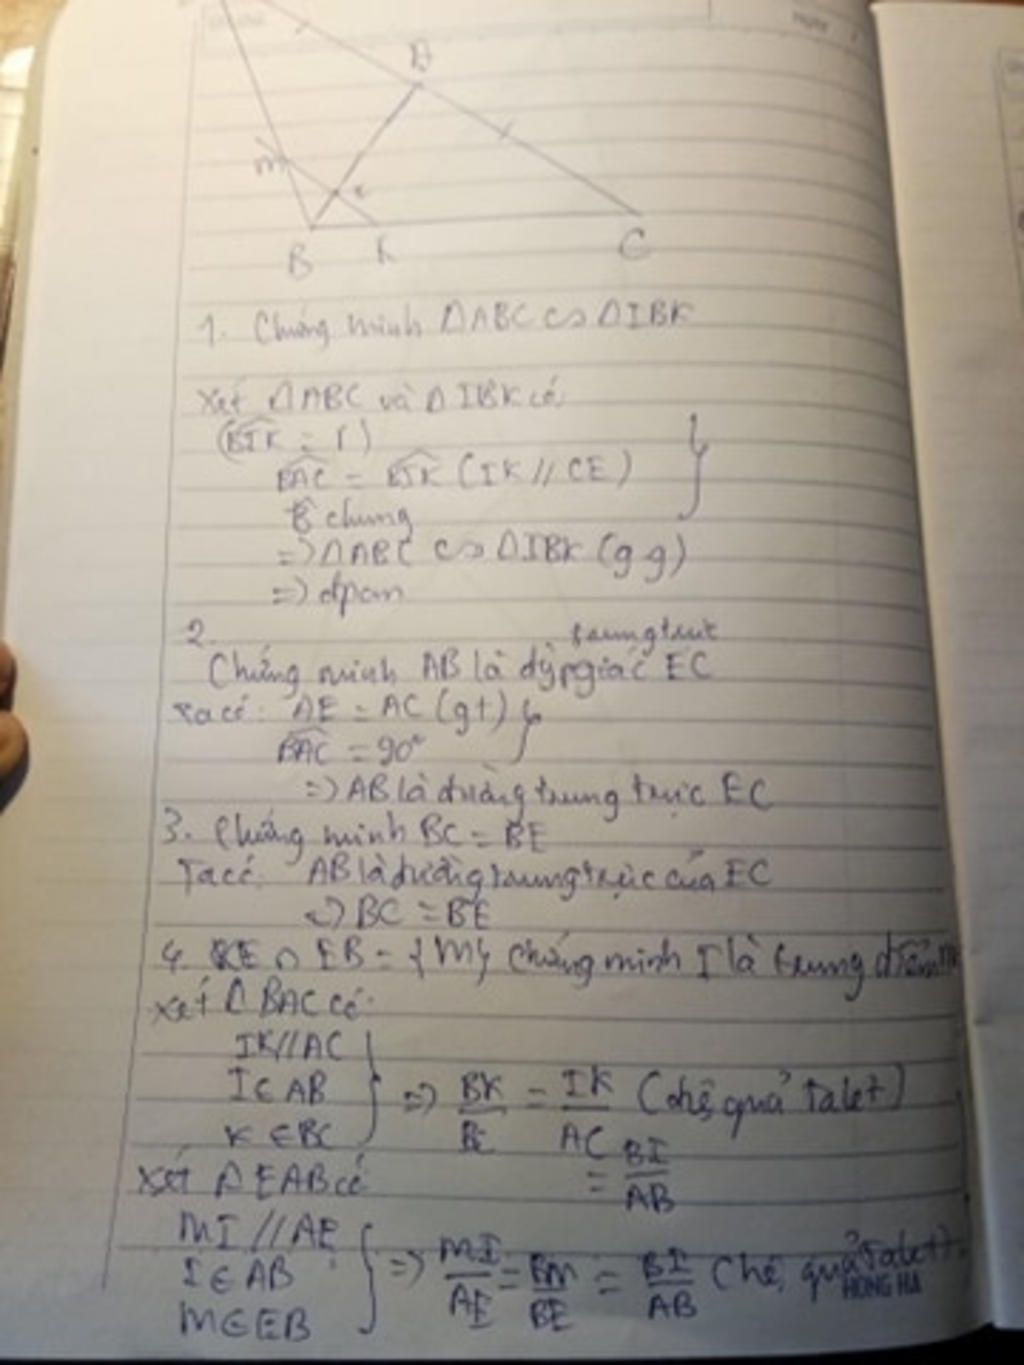 A
M
B
K
C
1. Chứng minh ΔABC ∽ ΔIBK
Xét ΔABC và ΔIBK có:
(BIK = 1)
BAC = BIK (IK // CE)
B chung
=> ΔABC ∽ ΔIBK (g g)
=> đpcm
2.
trung trực
Chứng minh AB là EC
Ta có: AE = AC (gt)
BAC = 90°
=> AB là đường trung trực EC
3. Chứng minh BC = BE
Ta có: AB là đường trung trực của EC
=> BC = BE
4. ∩ EB = {M} Chứng minh I là trung điểm
Xét Δ BAC có:
IK // AC
I ∈ AB
K ∈ BC
=> BK/BC = IK/AC (hệ quả Talet)
= BI/AB
Xét Δ EAB có
MI // AE
I ∈ AB
M ∈ EB
=> MI/AE = BM/BE = BI/AB (hệ quả Talet)
HONG HA